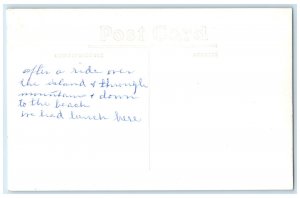 Post Card
after a ride over
the island & through
mountains & down
to the beach
we had lunch here